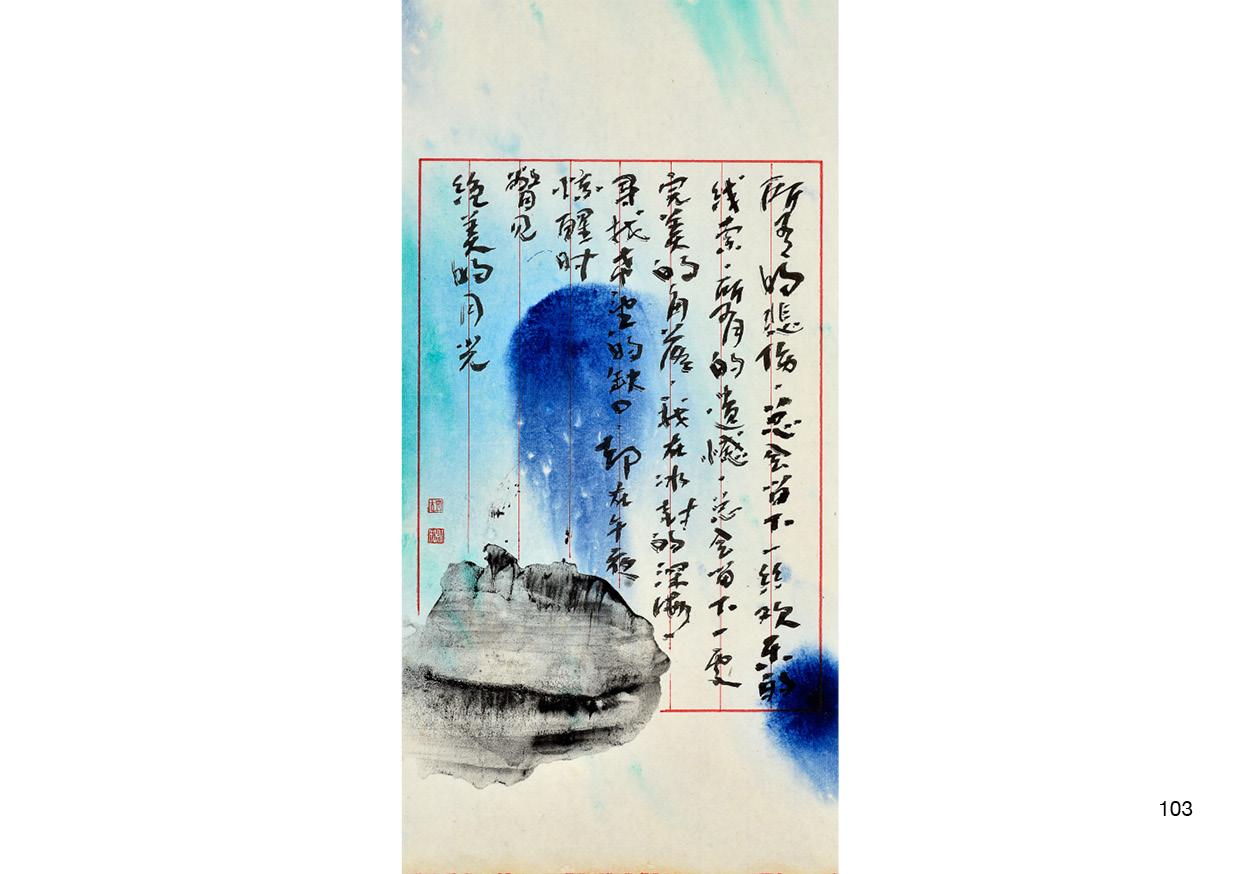 所有的悲伤，总会留下一丝欢乐的
线索，所有的遗憾，总会留下一处
完美的角落，我在冰封的深海，
寻找希望的缺口，却在午夜
惊醒时
瞥见
绝美的月光
103